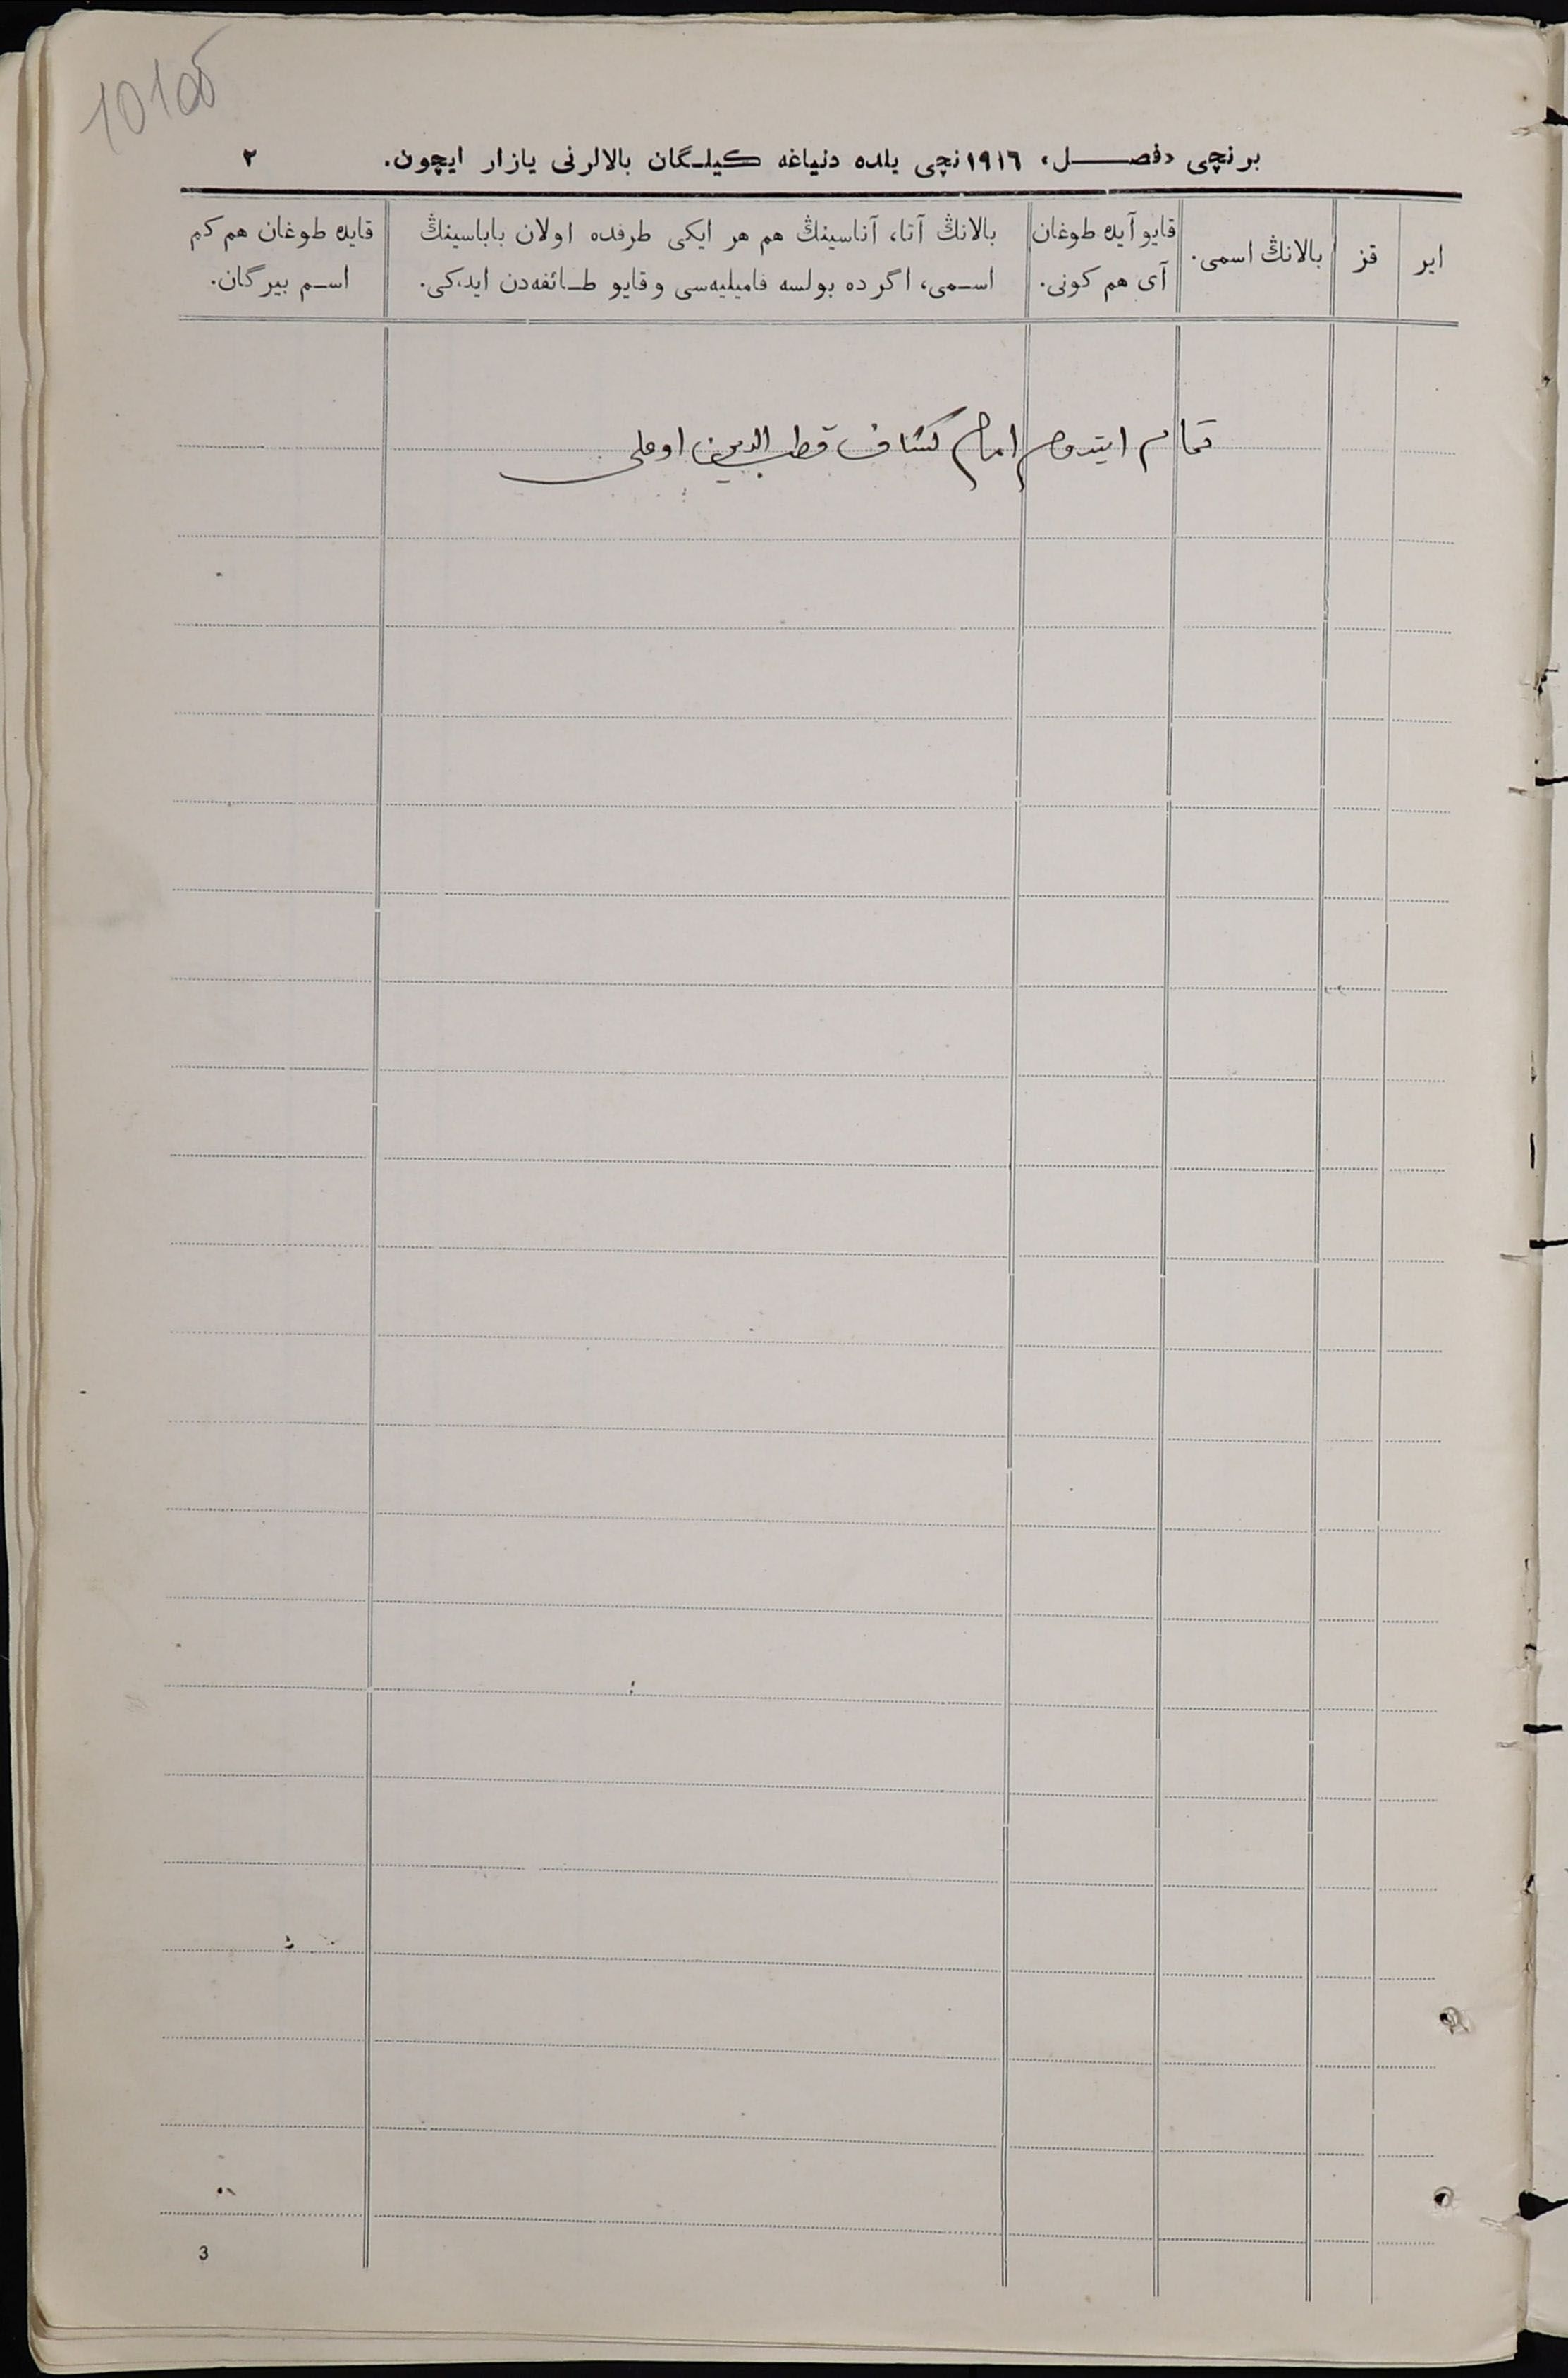 101об
برنچی «فصل» ١٩١٦نچی یلده دنیاغه كیلگان بالالرنی یازار ایچون. ٢
ایر
قز
بالانڭ اسمی.
قایو آیده طوغان
آی هم كونی.
بالانڭ آتا، آناسینڭ هم هر ایكی طرفده اولان باباسینڭ
اسمی، اگر ده بولسه فامیلیه‌سی و قایو طائفه‌دن ایدكی.
قایده طوغان هم كم
اسم بیرگان.
تمام ایتدوم امام كشاف قطب الدین اوغلی
3